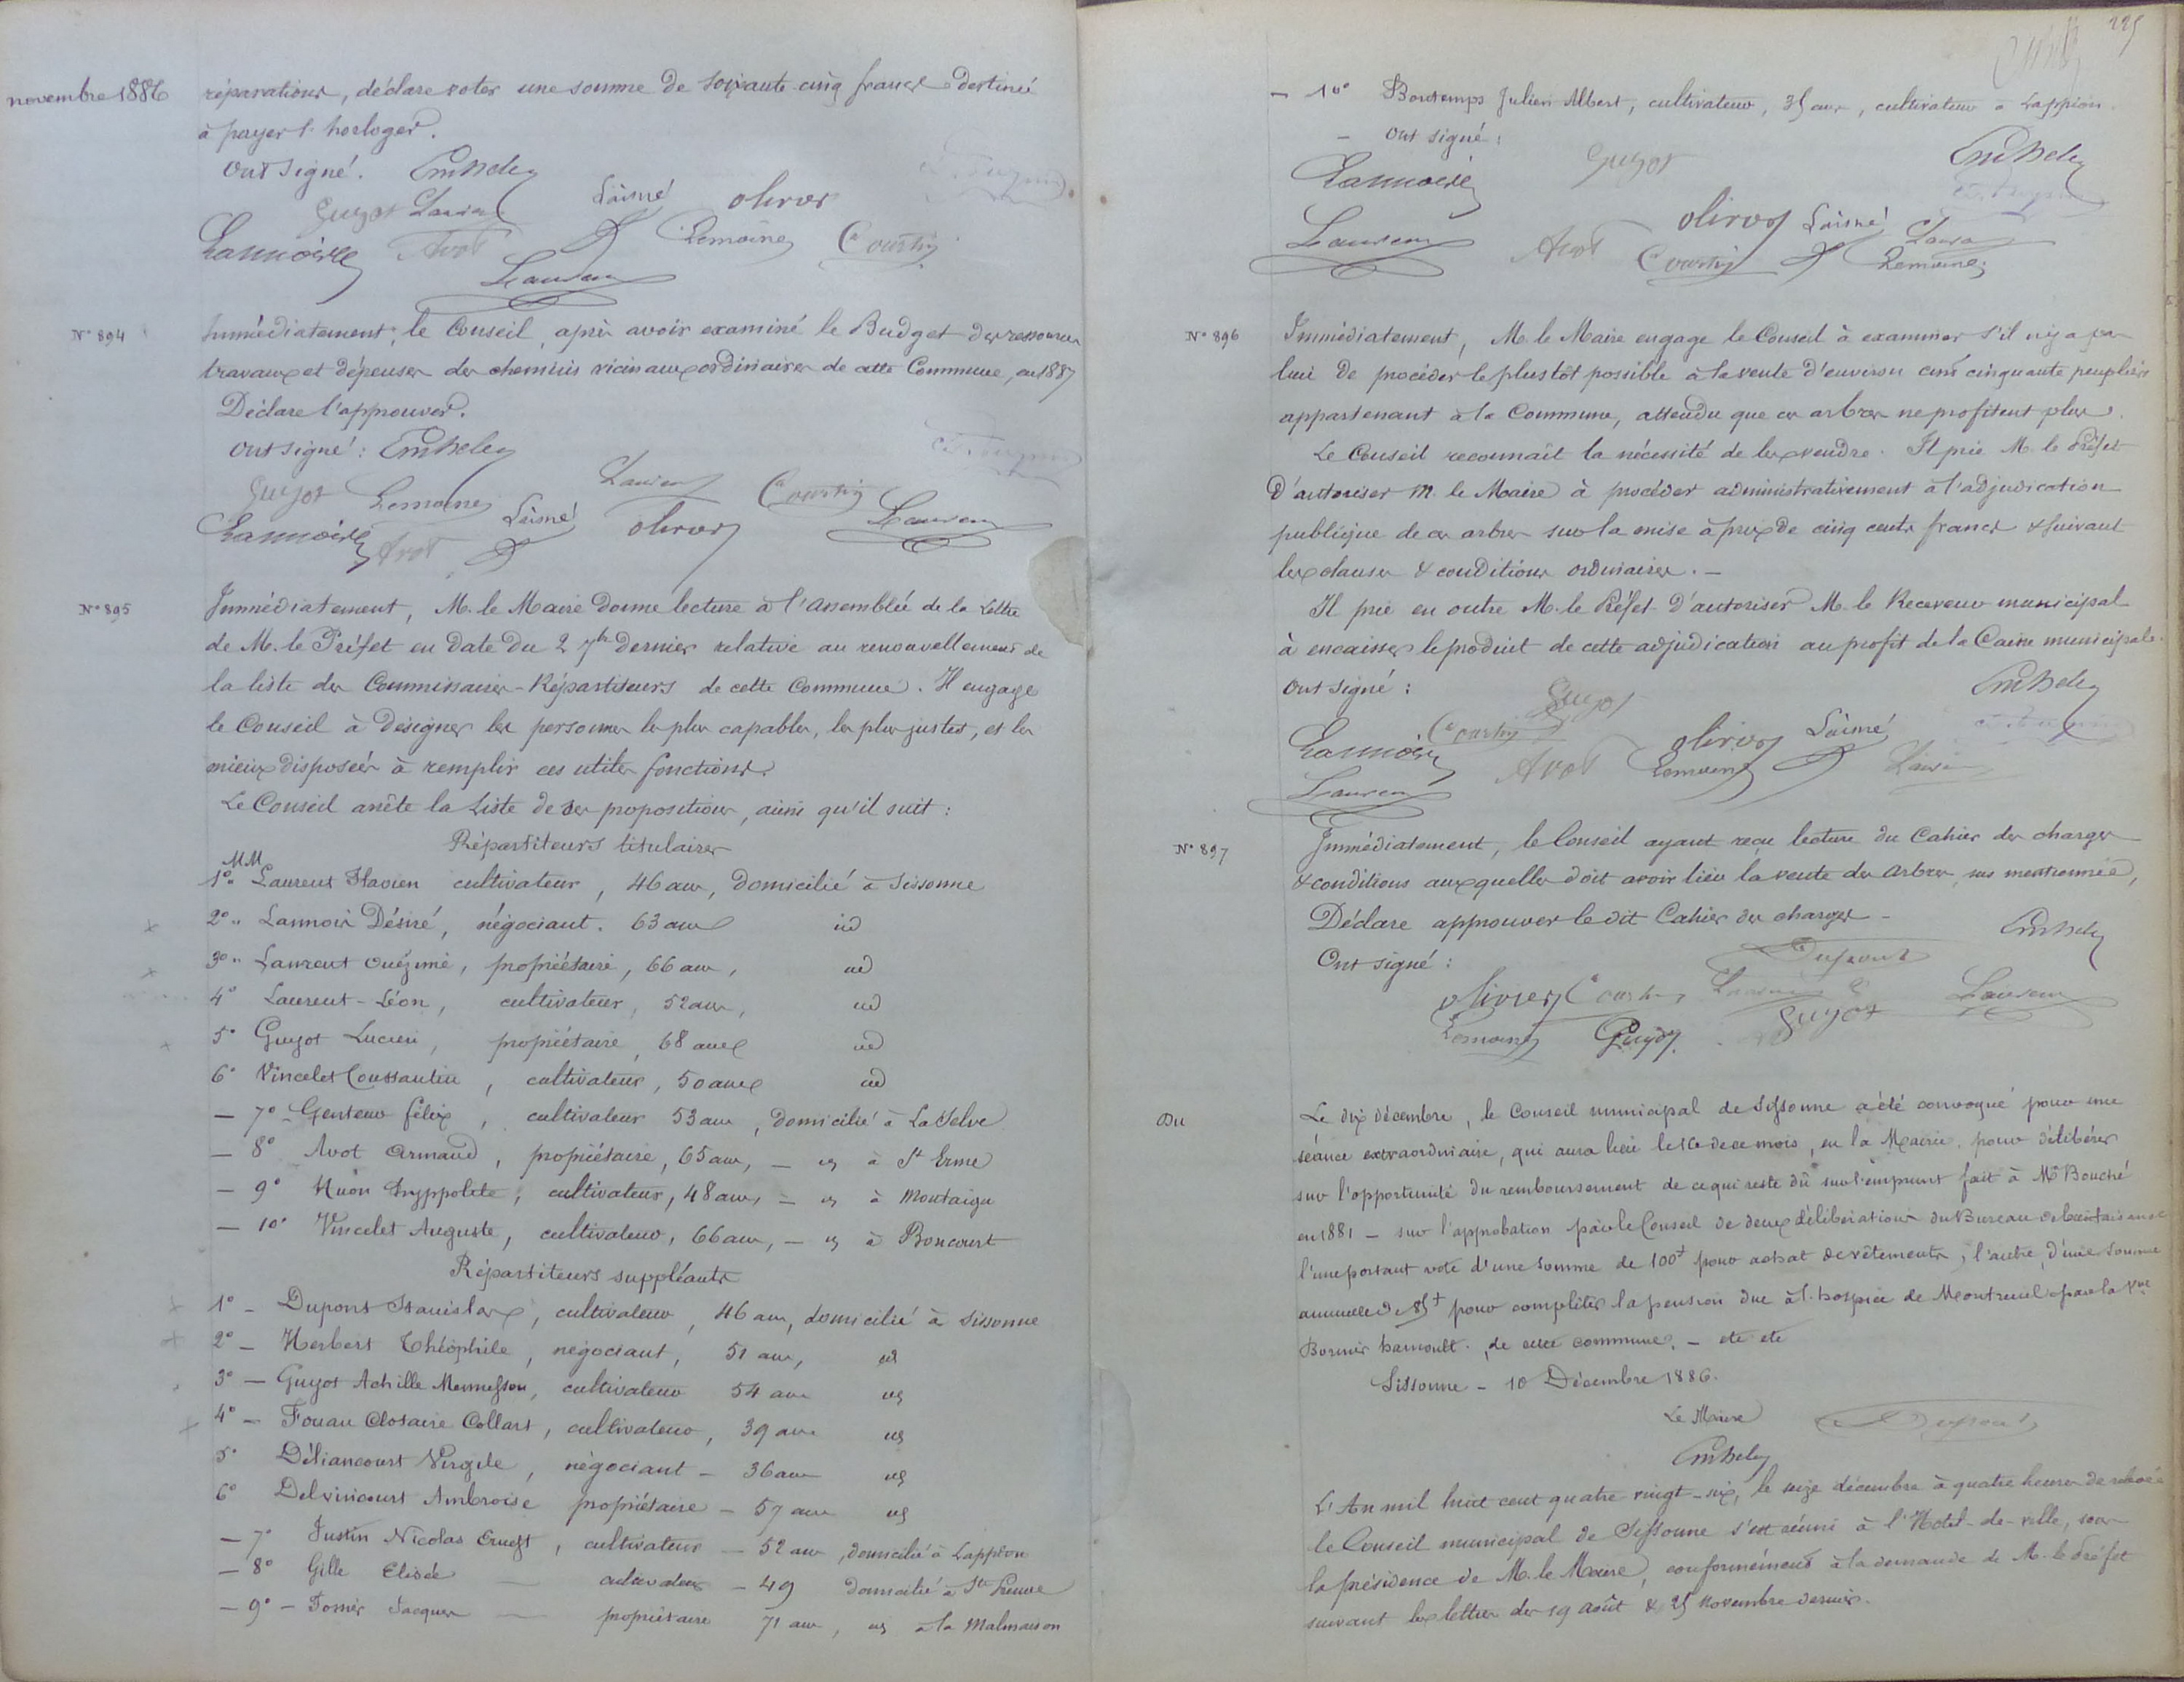 novembre 1886
réparations, déclare voter une somme de soixante cinq francs destiné
à payer l'horloger.
Ont signé.
Guyot Laurent Lainé olivier
Lannoire Avot Lemoine Courtin
Laurent
N° 894
Immédiatement, le Conseil, après avoir examiné le Budget des ressources
travaux et dépenses des chemins vicinaux ordinaires de cette Commune, en 1887
Déclare l'approuver.
Ont signé :
Guyot Lemoine Lainé Laurent Courtin
Lannoire Avot olivier Laurent
N° 895
Immédiatement, M. le Maire donne lecture à l'assemblée de la lettre
de M. le Préfet en date du 2 7bre dernier relative au renouvellement de
la liste des Commissaires-Répartiteurs de cette Commune. Il engage
le Conseil à désigner les personnes les plus capables, les plus justes, et les
mieux disposées à remplir ces utiles fonctions.
Le Conseil arrête la liste de ses propositions, ainsi qu'il suit :
Répartiteurs titulaires
MM
1° Laurent Flavien cultivateur, 46 ans, domicilié à Sissonne
2° Lannoir Désiré, négociant. 63 ans id
3° Laurent Onézime, propriétaire, 66 ans, id
4° Laurent-Léon, cultivateur, 52 ans, id
5° Guyot Lucien, propriétaire, 68 ans id
6° Vincelet Constantin, cultivateur, 50 ans id
— 7° Genteur félix, cultivateur 53 ans, domicilié à La Selve
— 8° Avot Armand, propriétaire, 65 ans, — id à St Erme
— 9° Huon hyppolite, cultivateur, 48 ans, — id à Montaigu
— 10° Vincelet Auguste, cultivateur, 66 ans, — id à Boncourt
Répartiteurs suppléants
1° — Dupont Stanislas, cultivateur, 46 ans, domicilié à Sissonne
2° — Herbert Théophile, négociant, 51 ans, id
3° — Guyot Achille Mennesson, cultivateur 54 ans id
4° — Fouan Clotaire Collart, cultivateur, 39 ans id
5° Déliancourt Virgile, négociant — 36 ans id
6° Delvincourt Ambroise propriétaire — 57 ans id
— 7° Justin Nicolas Ernest, cultivateur — 52 ans, domicilié à Lappion
— 8° Gille Elisée — cultivateur — 49 domicilié à Ste Preuve
— 9° — Jacques — propriétaire 71 ans, id à la Malmaison
225
— 10° Bontemps Julien Albert, cultivateur, 35 ans, cultivateur à Lappion.
— Ont signé :
Lannoire Guyot
Laurent Avot Courtin olivier Lainé Laurent
Lemoine
N° 896
Immédiatement, M. le Maire engage le Conseil à examiner s'il n'y a pas
lieu de procéder le plus tôt possible à la vente d'environ cent cinquante peupliers
appartenant à la Commune, attendu que ces arbres ne profitent plus.
Le Conseil reconnaît la nécessité de les vendre. Il prie M. le Préfet
D'autoriser M. le Maire à procéder administrativement à l'adjudication
publique de ces arbres sur la mise à prix de cinq cents francs & suivant
les clauses & conditions ordinaires. —
Il prie en outre M. le Préfet D'autoriser M. le Receveur municipal
à encaisser le produit de cette adjudication au profit de la Caisse municipale.
Ont signé :
Guyot
Lannoire Courtin Avot olivier Lainé
Laurent Lemoine Laurent
N° 897
Immédiatement, le Conseil ayant reçu lecture du Cahier des charges
& conditions auxquelles doit avoir lieu la vente des arbres sus mentionnés,
Déclare approuver le dit Cahier des charges —
Ont signé :
Dupont
olivier Courtin Laurent
Lemoine Guyot. Guyot
Du
Le dix décembre, le Conseil municipal de Sissonne a été convoqué pour une
séance extraordinaire, qui aura lieu le 16 de ce mois, en la Mairie, pour délibérer
sur l'opportunité du remboursement de ce qui reste dû sur l'emprunt fait à Mr Bouché
en 1881 — sur l'approbation par le Conseil de deux délibérations du Bureau de bienfaisance
l'une portant vote d'une somme de 100f pour achat de vêtements, l'autre, d'une somme
annuelle de 85f pour compléter la pension due à l'hospice de Montreuil par la Vve
de cette commune. — etc etc
Sissonne — 10 Décembre 1886.
Le Maire
Dupont
L'An mil huit cent quatre vingt-six, le seize décembre à quatre heures de relevée
le Conseil municipal de Sissonne s'est réuni à l'Hotel-de-ville, sous
la présidence de M. le Maire, conformément à la demande de M. le Préfet
suivant les lettres des 19 août & 25 novembre dernier.